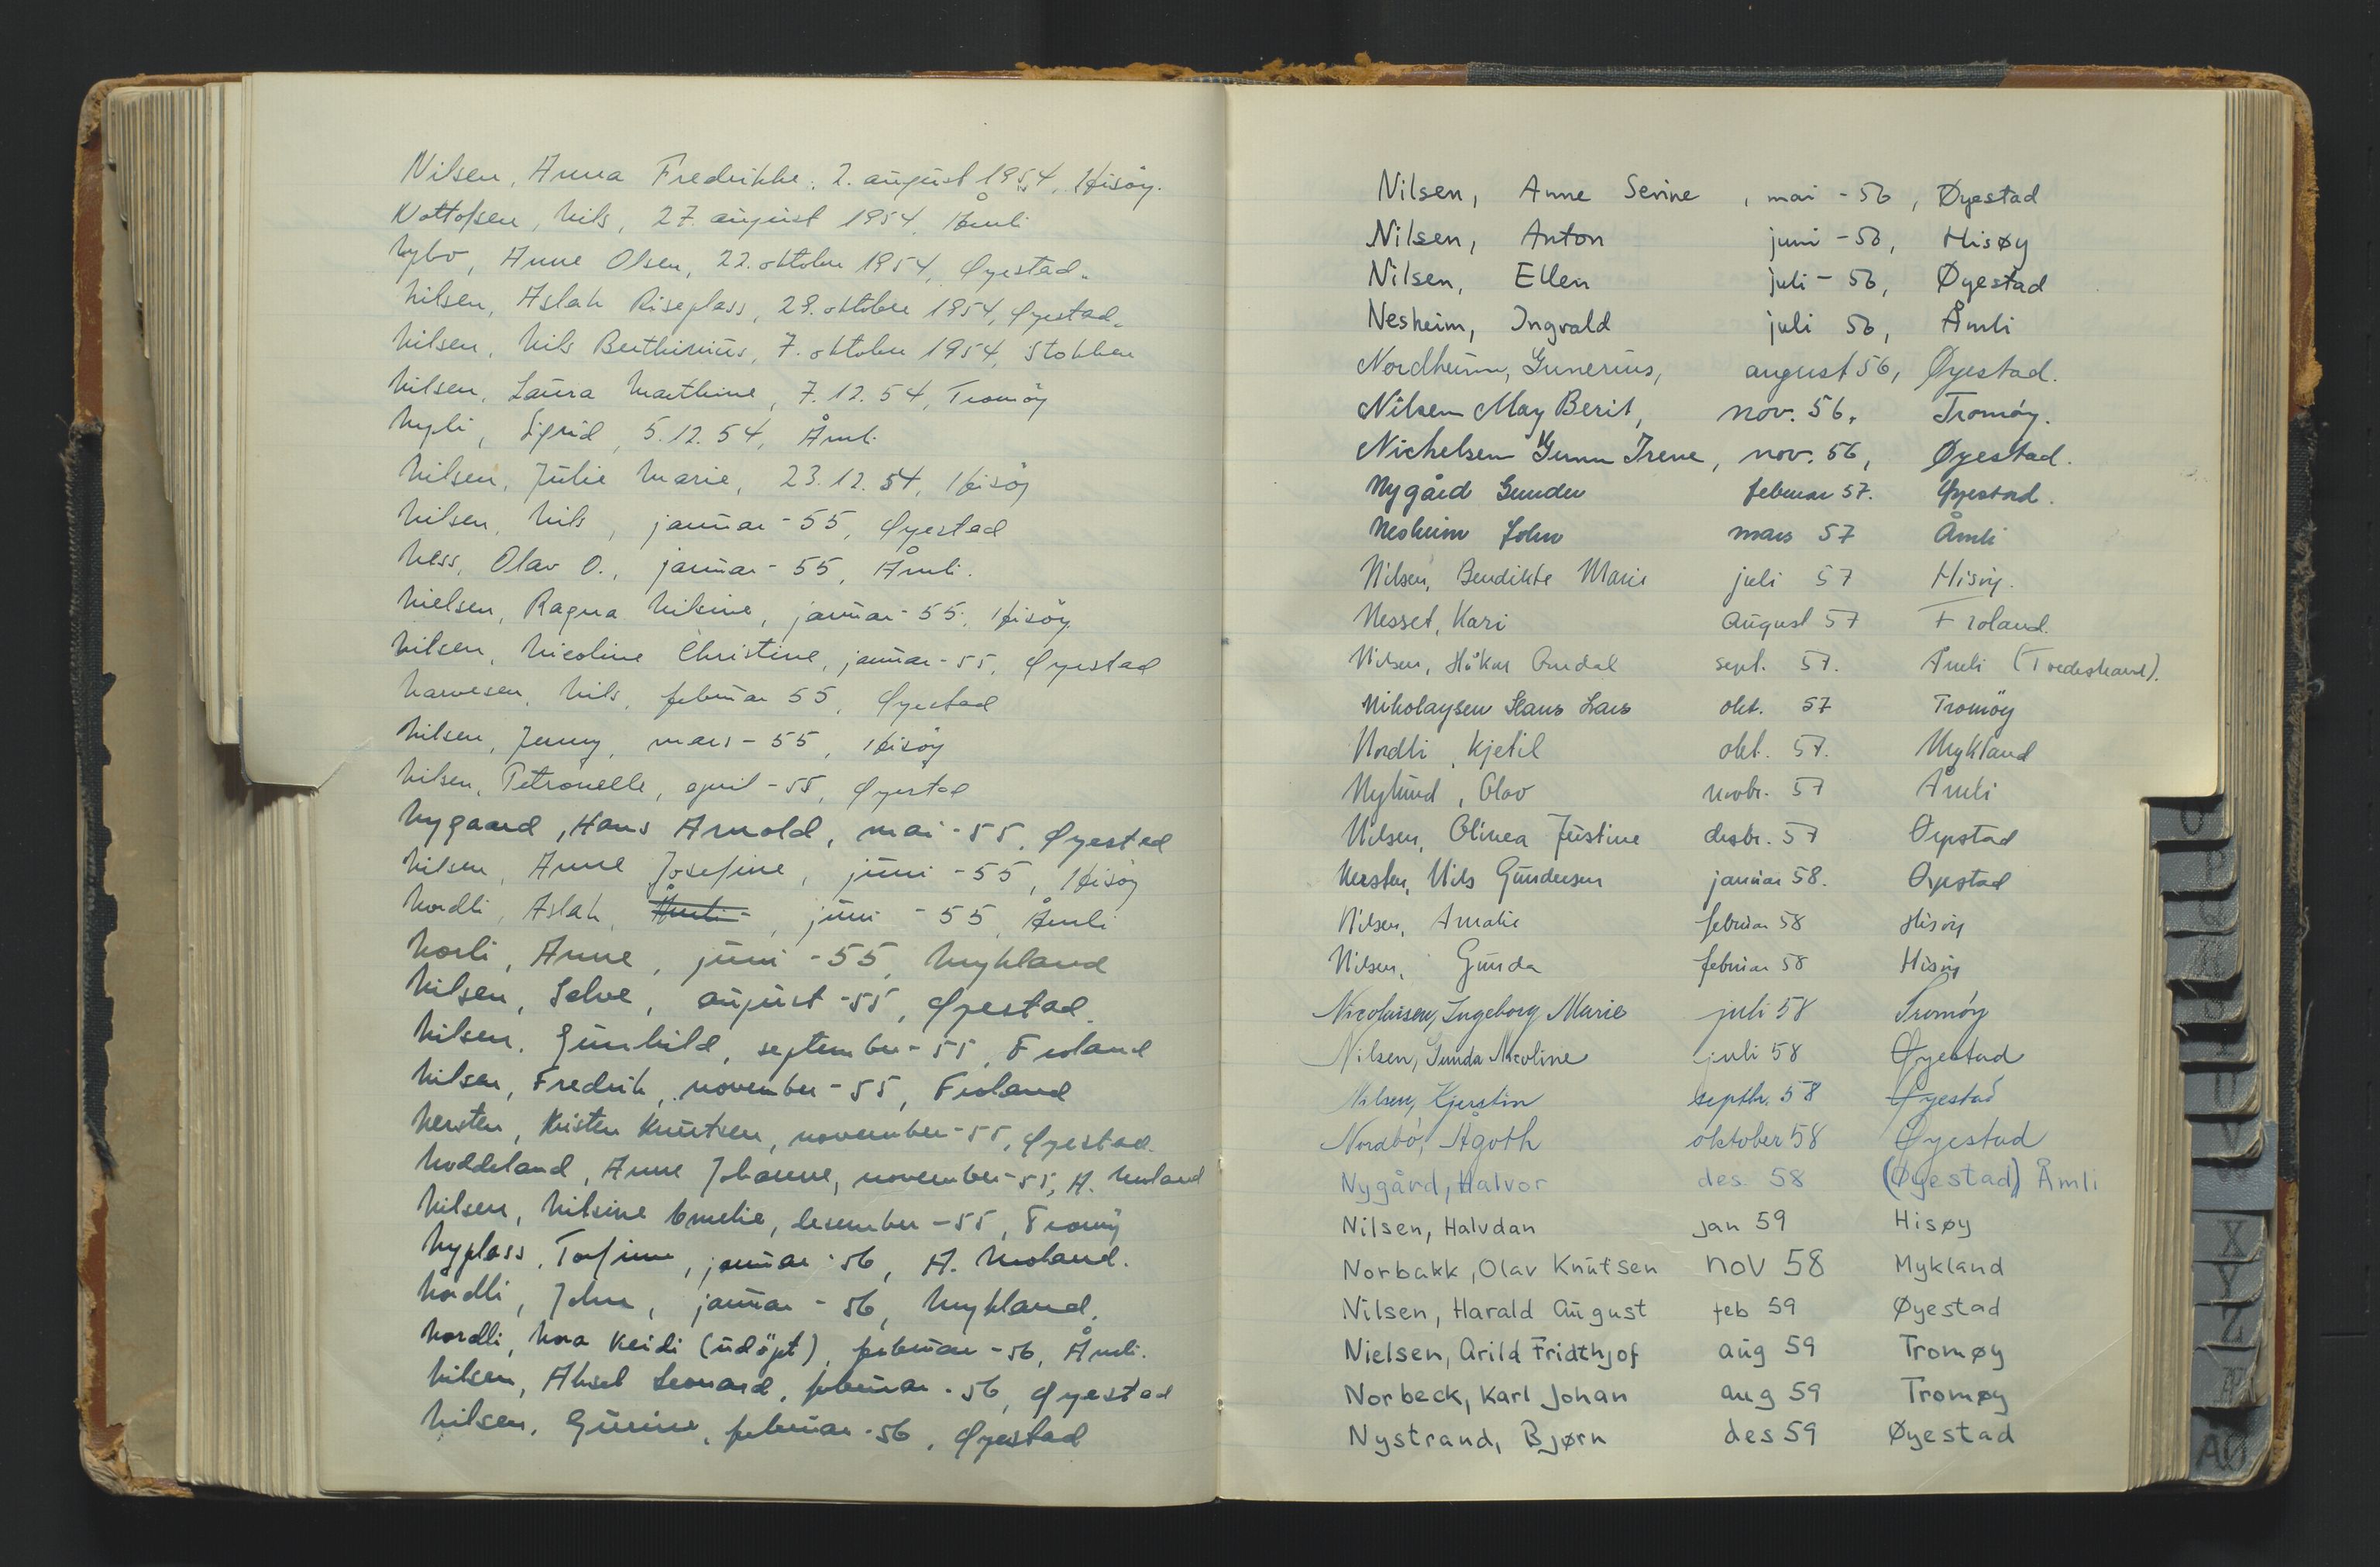 Nilsen, Anna Fredrikke, 2. august 1954, Hisöy.
Nottofsen, Nils, 27. august 1954, Åmli
Nybo, Anne Olsen, 22. oktober 1954, Øyestad.
Nilsen, Aslak Riseplass, 29. oktober 1954, Øyestad.
Nilsen, Nils Berthinius, 7. oktober 1954, Stokken
Nilsen, Laura Marthine, 7.12.54, Tromöy
Nyli, Sigrid, 5.12.54, Åmli
Nilsen, Julie Marie, 23.12.54, Hisöy
Nilsen, Nils, januar - 55, Øyestad
Ness, Olav O., januar - 55, Åmli.
Nielsen, Ragna Nilsine, januar - 55, Hisöy
Nilsen, Nicoline Christine, januar - 55, Øyestad
Narvesen, Nils, februar 55, Øyestad
Nilsen, Jenny, mars - 55, Hisöy
Nilsen, Petronelle, april - 55, Øyestad
Nygaard, Hans Arnold, mai - 55, Øyestad
Nilsen, Anne Josefine, juni - 55, Hisöy
Nordli, Aslak, Åmli, juni - 55, Åmli
Norli, Anne, juni - 55, Mykland
Nilsen, Salve, august - 55, Øyestad.
Nilsen, Gunhild, september - 55, Froland
Nilsen, Fredrik, november - 55, Froland
Nersten, Kristen Knutsen, november - 55, Øyestad.
Noddeland, Anne Johanne, november - 55, A. Moland
Nilsen, Nilsine Emelie, desember - 55, Tromöy
Nyplass, Torfinn, januar - 56, A. Moland.
Nordli, John, januar - 56, Mykland.
Nordli, Nora Heidi (udöpt), februar - 56, Åmli.
Nilsen, Aksel Leonard, februar - 56, Øyestad
Nilsen, Gurine, februar - 56, Øyestad
Nilsen, Anne Serine, mai - 56, Øyestad
Nilsen, Anton juni - 56, Hisøy
Nilsen, Ellen juli - 56, Øyestad
Nesheim, Ingvald juli 56, Åmli
Nordheim, Gunerius, august 56, Øyestad.
Nilsen May Berit, nov. 56. Tromøy.
Nichelsen Gunn Irene, nov. 56, Øyestad.
Nygård Gunder februar 57. Øyestad.
Nesheim John mars 57 Åmli
Nilsen, Bendikte Marie juli 57 Hisöy.
Nesset, Kari august 57 Froland.
Nilsen, Håkon Omdal sept. 57. Åmli (Tvedestrand).
Nikolaysen Hans Lars okt. 57 Tromöy
Nordli, Kjetil okt. 57. Mykland
Nylund, Olav novbr. 57 Åmli
Nilsen, Olinea Justine desbr. 57 Øyestad
Nersten, Nils Gundersen januar 58. Øyestad
Nilsen, Amalie februar 58 Hisöy
Nilsen, Gunda februar 58 Hisöy
Nicolaisen, Ingeborg Marie juli 58 Tromöy
Nilsen, Gunda Nicoline juli 58 Øyestad
Nilsen, Kjerstin septbr. 58 Øyestad
Nordbö, Agoth oktober 58 Øyestad
Nygård, Halvor des 58 (Øyestad) Åmli
Nilsen, Halvdan jan 59 Hisøy
Norbakk, Olav Knutsen nov 58 Mykland
Nilsen, Harald August feb 59 Øyestad
Nielsen, Arild Fridthjof aug 59 Tromøy
Norbeck, Karl Johan aug 59 Tromøy
Nystrand, Bjørn des 59 Øyestad
O
P
Q
R
S
T
U
V
W
X
Y
Z
Æ
AØ